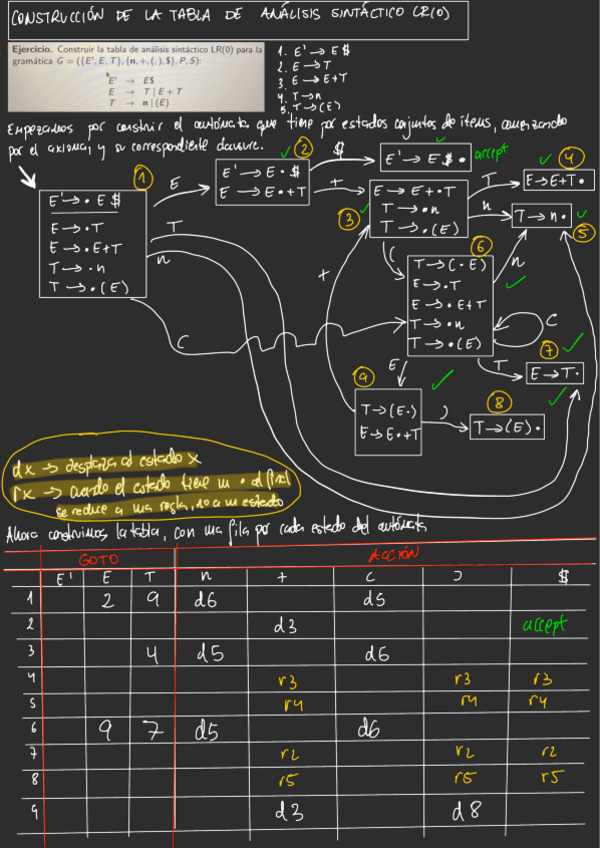 CONSTRUCCIÓN DE LA TABLA DE ANÁLISIS SINTÁCTICO LR(0)
Ejercicio. Construir la tabla de análisis sintáctico LR(0) para la
gramática G = ({E', E, T}, {n, +, (, ), $}, P, S):
E' → E$
E → T | E + T
T → n | (E)
1. E' → E $
2. E → T
3. E → E+T
4. T → n
5. T → (E)
Empezamos por construir el autómata que tiene por estados conjuntos de items, comenzando
por el axioma, y su correspondiente clausura.
1
E' → · E $
E → · T
E → · E+T
T → · n
T → · (E)
E
T
n
C
2
E' → E · $
E → E · + T
$
+
E' → E $ ·
accept
3
E → E + · T
T → · n
T → · (E)
T
n
(
4
E → E+T ·
T → n ·
5
6
T → ( · E)
E → · T
E → · E+T
T → · n
T → · (E)
n
C
T
E
7
E → T ·
+
9
T → (E ·)
E → E · + T
)
8
T → (E) ·
dx → desplaza al estado x
rx → cuando el estado tiene un · al final
se reduce a una regla, no a un estado
Ahora construimos la tabla, con una fila por cada estado del autómata
GOTO ACCIÓN
E' E T n + C ) $
1 2 9 d6 d5
2 d3 accept
3 4 d5 d6
4 r3 r3 r3
5 r4 r4 r4
6 9 7 d5 d6
7 r2 r2 r2
8 r5 r5 r5
9 d3 d8